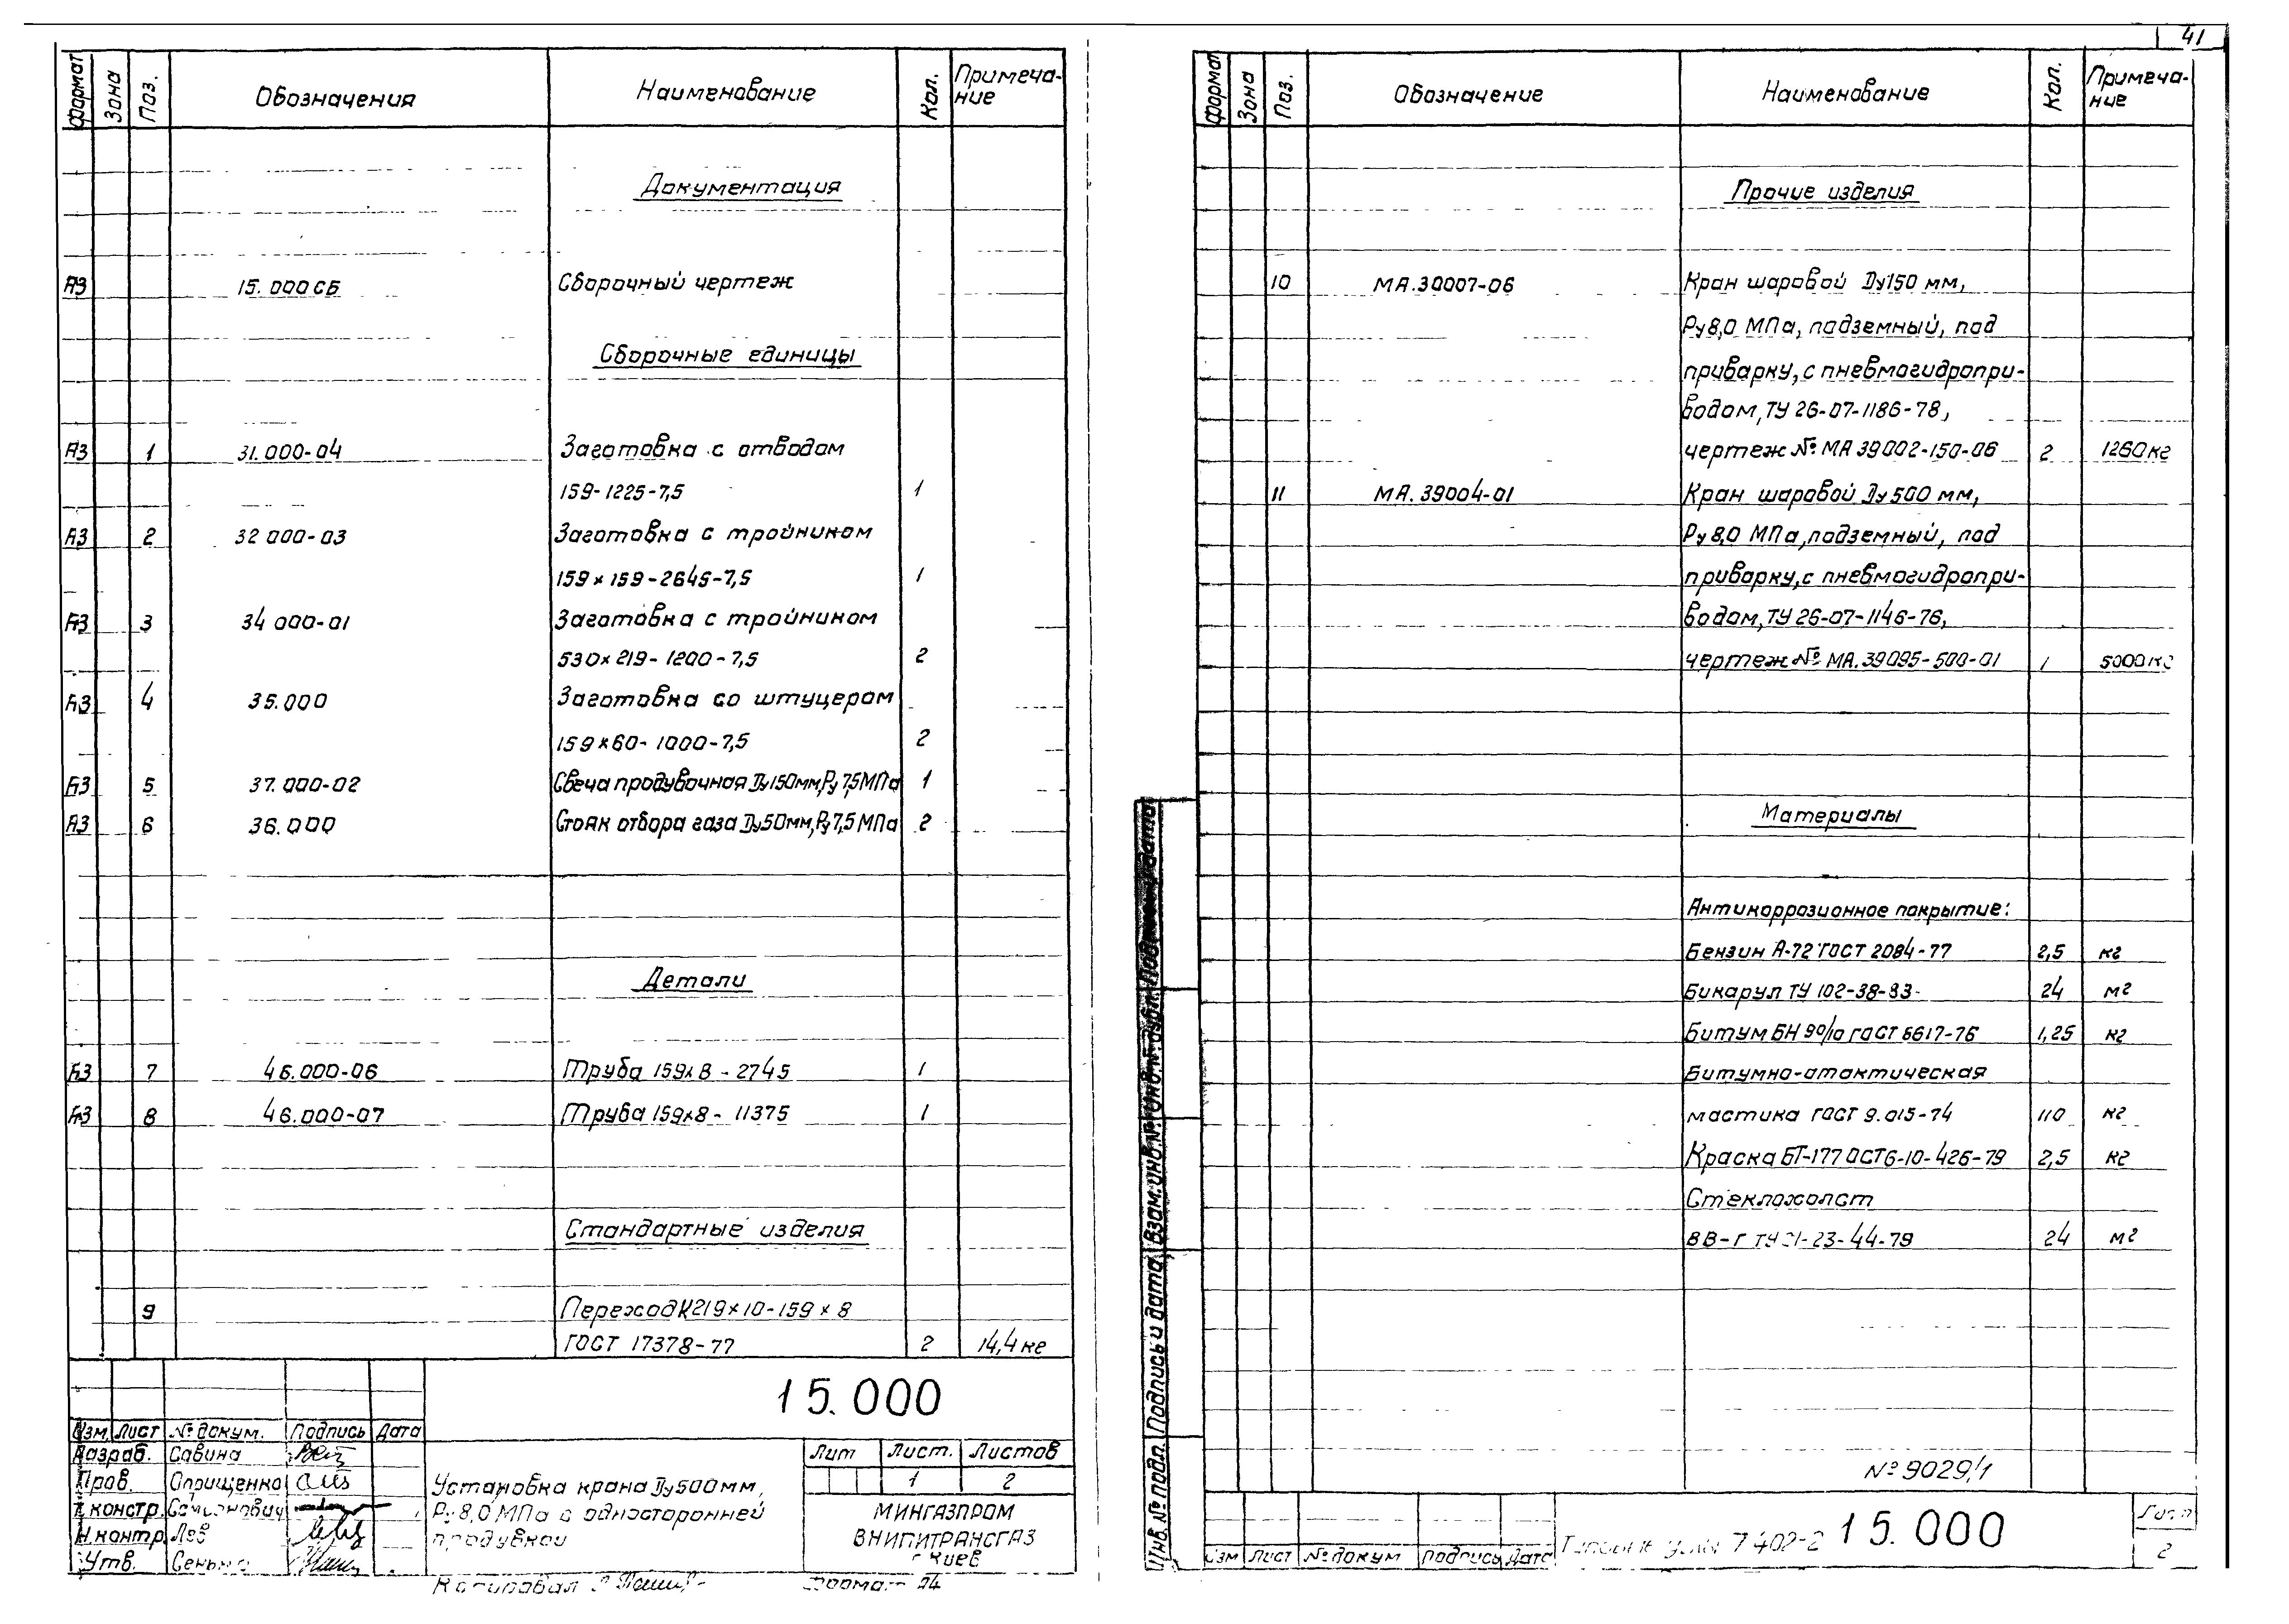 41
Формат Зона Поз. Обозначения Наименование Кол. Примеча-
ние
Документация
А3 15.000СБ Сборочный чертеж
Сборочные единицы
А3 1 31.000-04 Заготовка с отводом
159-1225-7,5 1
А3 2 32 000-03 Заготовка с тройником
159×159-2645-7,5 1
А3 3 34 000-01 Заготовка с тройником
530×219-1200-7,5 2
А3 4 35.000 Заготовка со штуцером
159×60-1000-7,5 2
А3 5 37.000-02 Свеча продувочная Ду150мм,Ру 7,5МПа 1
А3 6 36.000 Стояк отбора газа Ду50мм,Ру7,5МПа 2
Детали
А3 7 46.000-06 Труба 159×8-2745 1
А3 8 46.000-07 Труба 159×8-11375 1
Стандартные изделия
9 Переход К219×10-159×8
ГОСТ 17378-77 2 14,4кг
15.000
Изм. Лист № докум. Подпись Дата
Разраб. Савина
Пров. Оприщенко
Н.контр. Лев
Утв.
Установка крана Ду500мм,
Ру 8,0 МПа с односторонней
продувкой
Лит Лист. Листов
1 2
МИНГАЗПРОМ
ВНИПИТРАНСГАЗ
г. Киев
Копировал Формат А4
Формат Зона Поз. Обозначение Наименование Кол. Примеча-
ние
Прочие изделия
10 МА.30007-06 Кран шаровой Ду150 мм,
Ру8,0 МПа, подземный, под
приварку, с пневмогидропри-
водом, ТУ 26-07-1186-78,
чертеж № МА 39002-150-06 2 1260кг
11 МА.39004-01 Кран шаровой Ду500 мм,
Ру 8,0 МПа, подземный, под
приварку, с пневмогидропри-
водом, ТУ 26-07-1146-76,
чертеж № МА.39095-500-01 1 5000кг
Материалы
Антикоррозионное покрытие:
Бензин А-72 ГОСТ 2084-77 2,5 кг
Бикарул ТУ 102-38-83 24 м²
Битум БН 90/10 ГОСТ 6617-76 1,25 кг
Битумно-атактическая
мастика ГОСТ 9.015-74 110 кг
Краска БТ-177 ОСТ6-10-426-79 2,5 кг
Стеклохолст
ВВ-Г ТУ 21-23-44-79 24 м²
№ 9029/1
Инв. № подл. Подпись и дата Взам. инв. № Инв. № дубл. Подпись и дата
Изм Лист № докум Подпись Дата
Типовые узлы 7 402-2 15.000
Лист
2